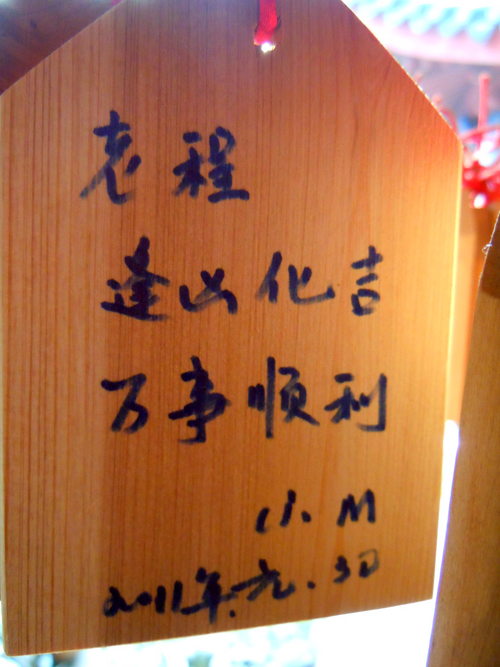 老程
逢凶化吉
万事顺利
小.M
2011年.元.3日